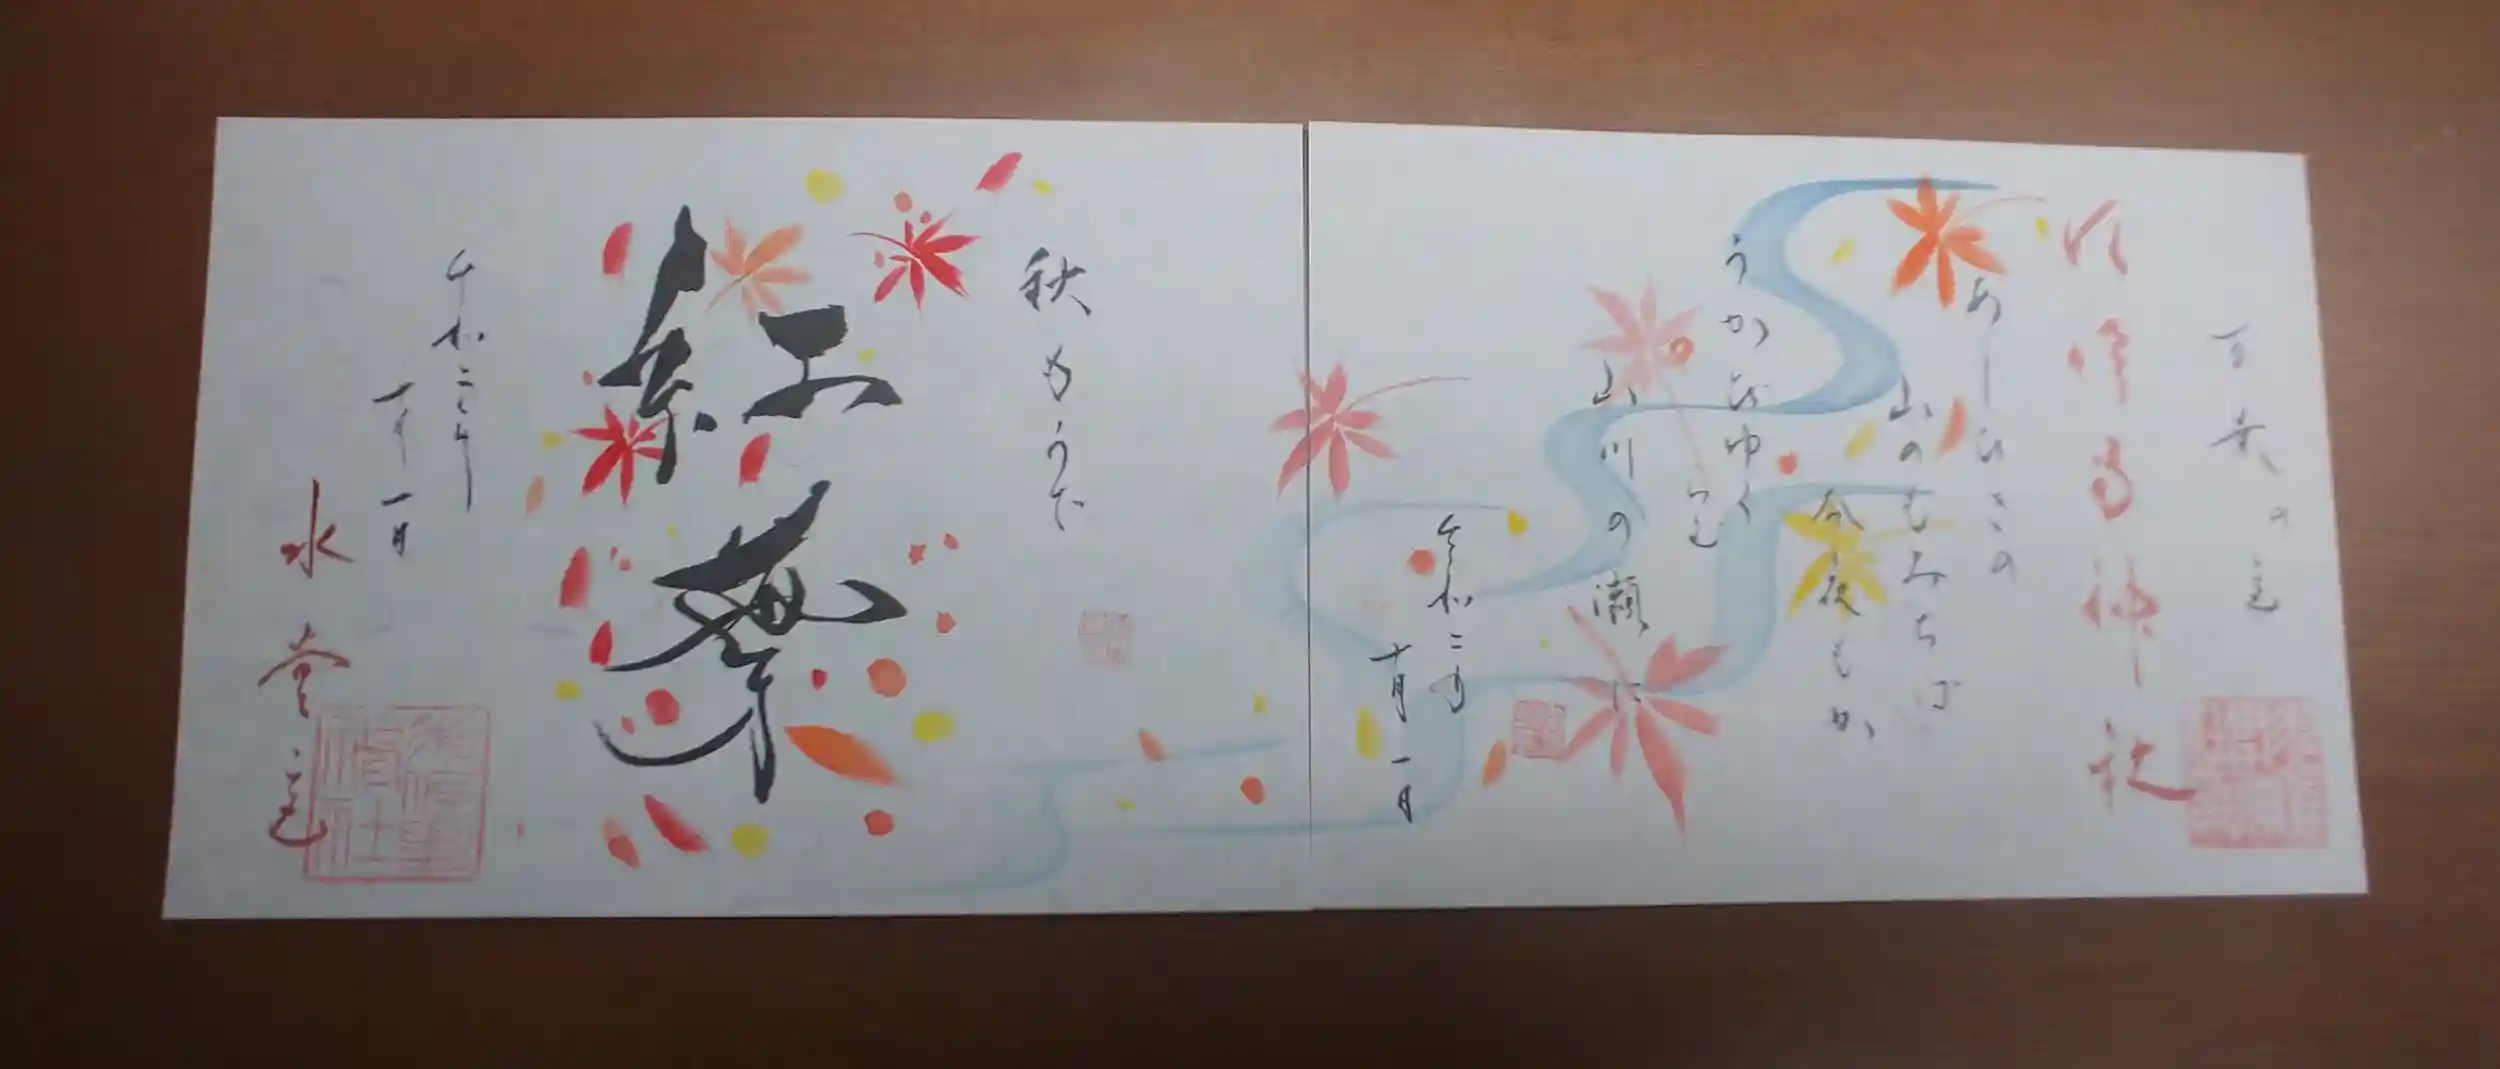 万葉の道
住吉神社
あしひきの
山のもみちば
今夜もか
うかびゆく
らむ
山川の瀬に
令和二年
十一月一日
秋もうで
紅葉
令和二年
十一月一日